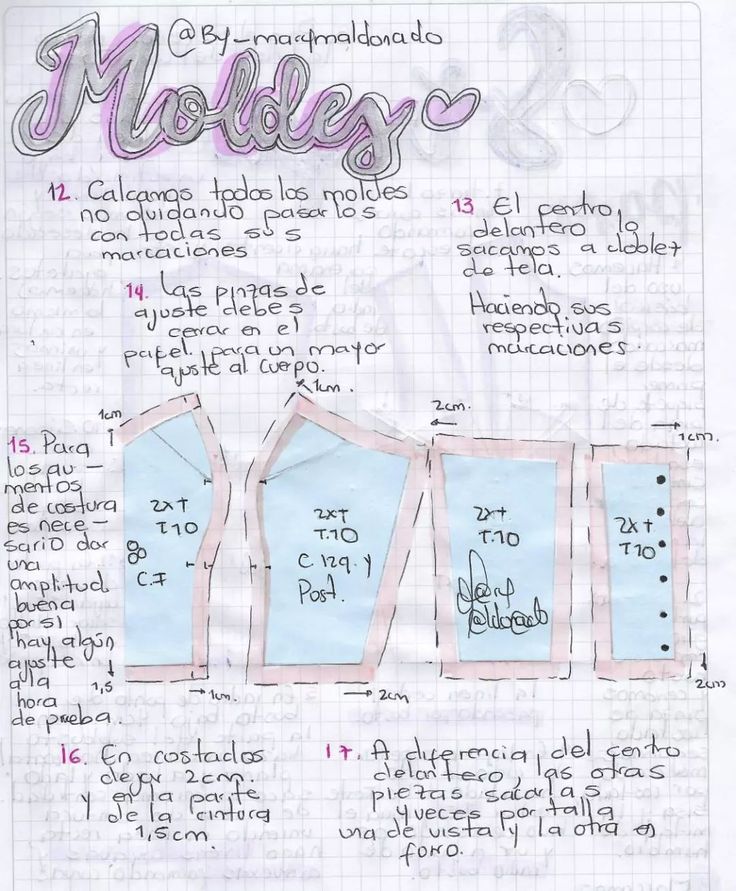 @By_marymaldonado
Moldes
12. Calcamos todos los moldes
no olvidando pasarlos
con todas sus
marcaciones
13 El centro
delantero lo
sacamos a doblez
de tela.
Haciendo sus
respectivas
marcaciones.
14. Las pinzas de
ajuste debes
cerrar en el
papel. para un mayor
ajuste al cuerpo.
15. Para
los au-
mentos
de costura
es nece-
sario dar
una
amplitud
buena
por si
hay algún
ajuste
a la
hora
de prueba.
1cm
1cm.
2cm.
1cm.
2x+
T.10
C.F
2x+
T.10
C izq. y
Post.
2x+
T.10
2x+
T.10
1,5
1cm.
2cm
2cm
16. En costados
dejar 2cm.
y en la parte
de la cintura
1,5cm.
17. A diferencia del centro
delantero, las otras
piezas sacarlas
4 veces por talla
una de vista y la otra en
forro.